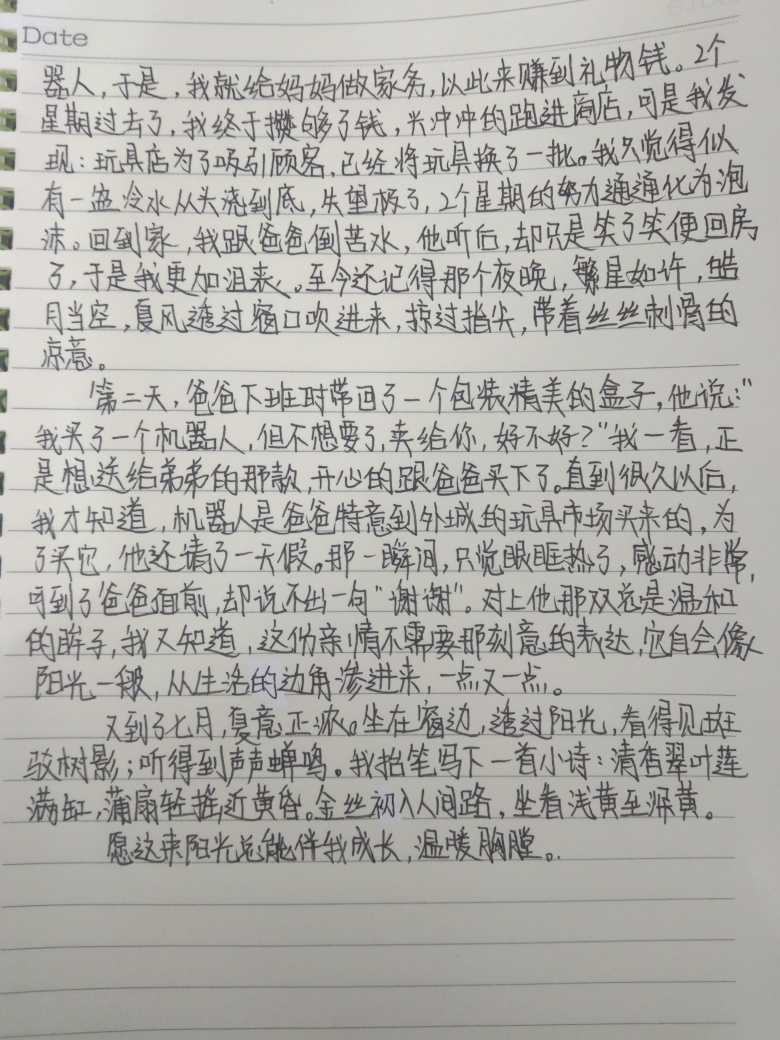 Date
器人,于是,我就给妈妈做家务,以此来赚到礼物钱。2个
星期过去了,我终于攒够了钱,兴冲冲的跑进商店,可是我发
现:玩具店为了吸引顾客,已经将玩具换了一批。我只觉得似
有一盆冷水从头浇到底,失望极了,2个星期的努力通通化为泡
沫。回到家,我跟爸爸倒苦水,他听后,却只是笑了笑便回房
了,于是我更加沮丧。至今还记得那个夜晚,繁星如许,皓
月当空,夏风透过窗口吹进来,掠过指尖,带着丝丝刺骨的
凉意。
第二天,爸爸下班时带回了一个包装精美的盒子,他说:"
我买了一个机器人,但不想要了,卖给你,好不好?"我一看,正
是想送给弟弟的那款,开心的跟爸爸买下了。直到很久以后,
我才知道,机器人是爸爸特意到外城的玩具市场买来的,为
了买它,他还请了一天假。那一瞬间,只觉眼眶热了,感动非常,
可到了爸爸面前,却说不出一句"谢谢"。对上他那双总是温和
的眸子,我又知道,这份亲情不需要那刻意的表达,它自会像
阳光一般,从生活的边角渗进来,一点又一点。
又到了七月,夏意正浓。坐在窗边,透过阳光,看得见斑
驳树影;听得到声声蝉鸣。我抬笔写下一首小诗:清香翠叶莲
满缸,蒲扇轻摇近黄昏。金丝初入人间路,坐看浅黄至深黄。
愿这束阳光总能伴我成长,温暖胸膛。